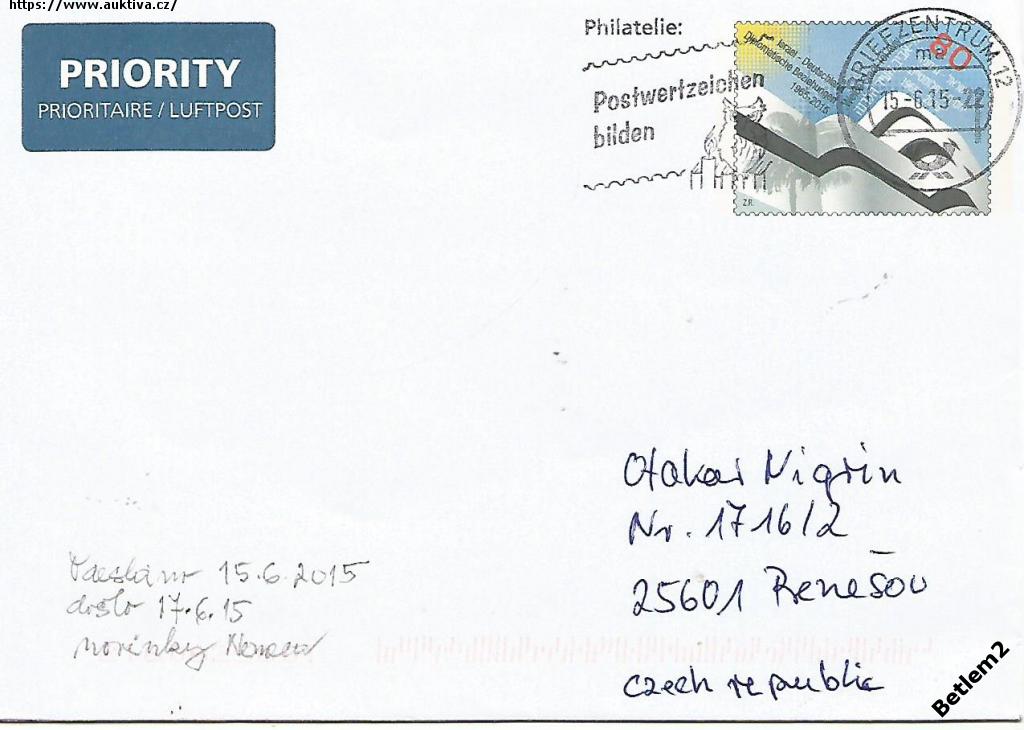 https://www.auktiva.cz/
PRIORITY
PRIORITAIRE / LUFTPOST
Philatelie:
Postwertzeichen
bilden
Israel – Deutschland
Diplomatische Beziehungen
1965-2015
80
BRIEFZENTRUM 12
ma
15-6.15-22
Z.R.
Otakar Nigrin
Nr. 1716/2
25601 Benešov
Czech republic
15.6.2015
došlo 17.6.15
novinky
Betlem2